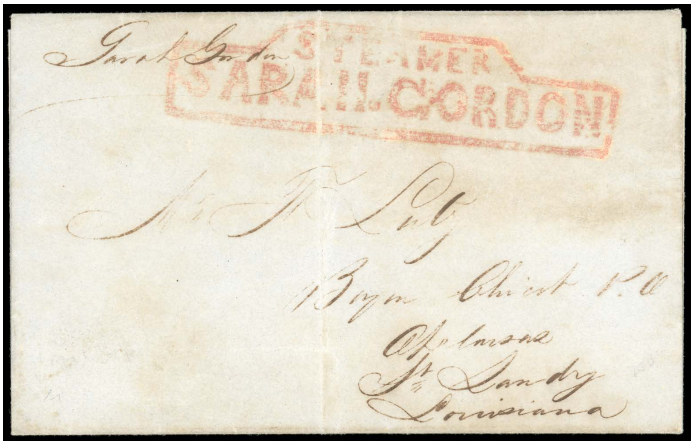 Sarah Gordon
STEAMER
SARAH GORDON
Mr. F. Lutz
Bayou Chicot P.O
Opelousas
St. Landry
Louisiana